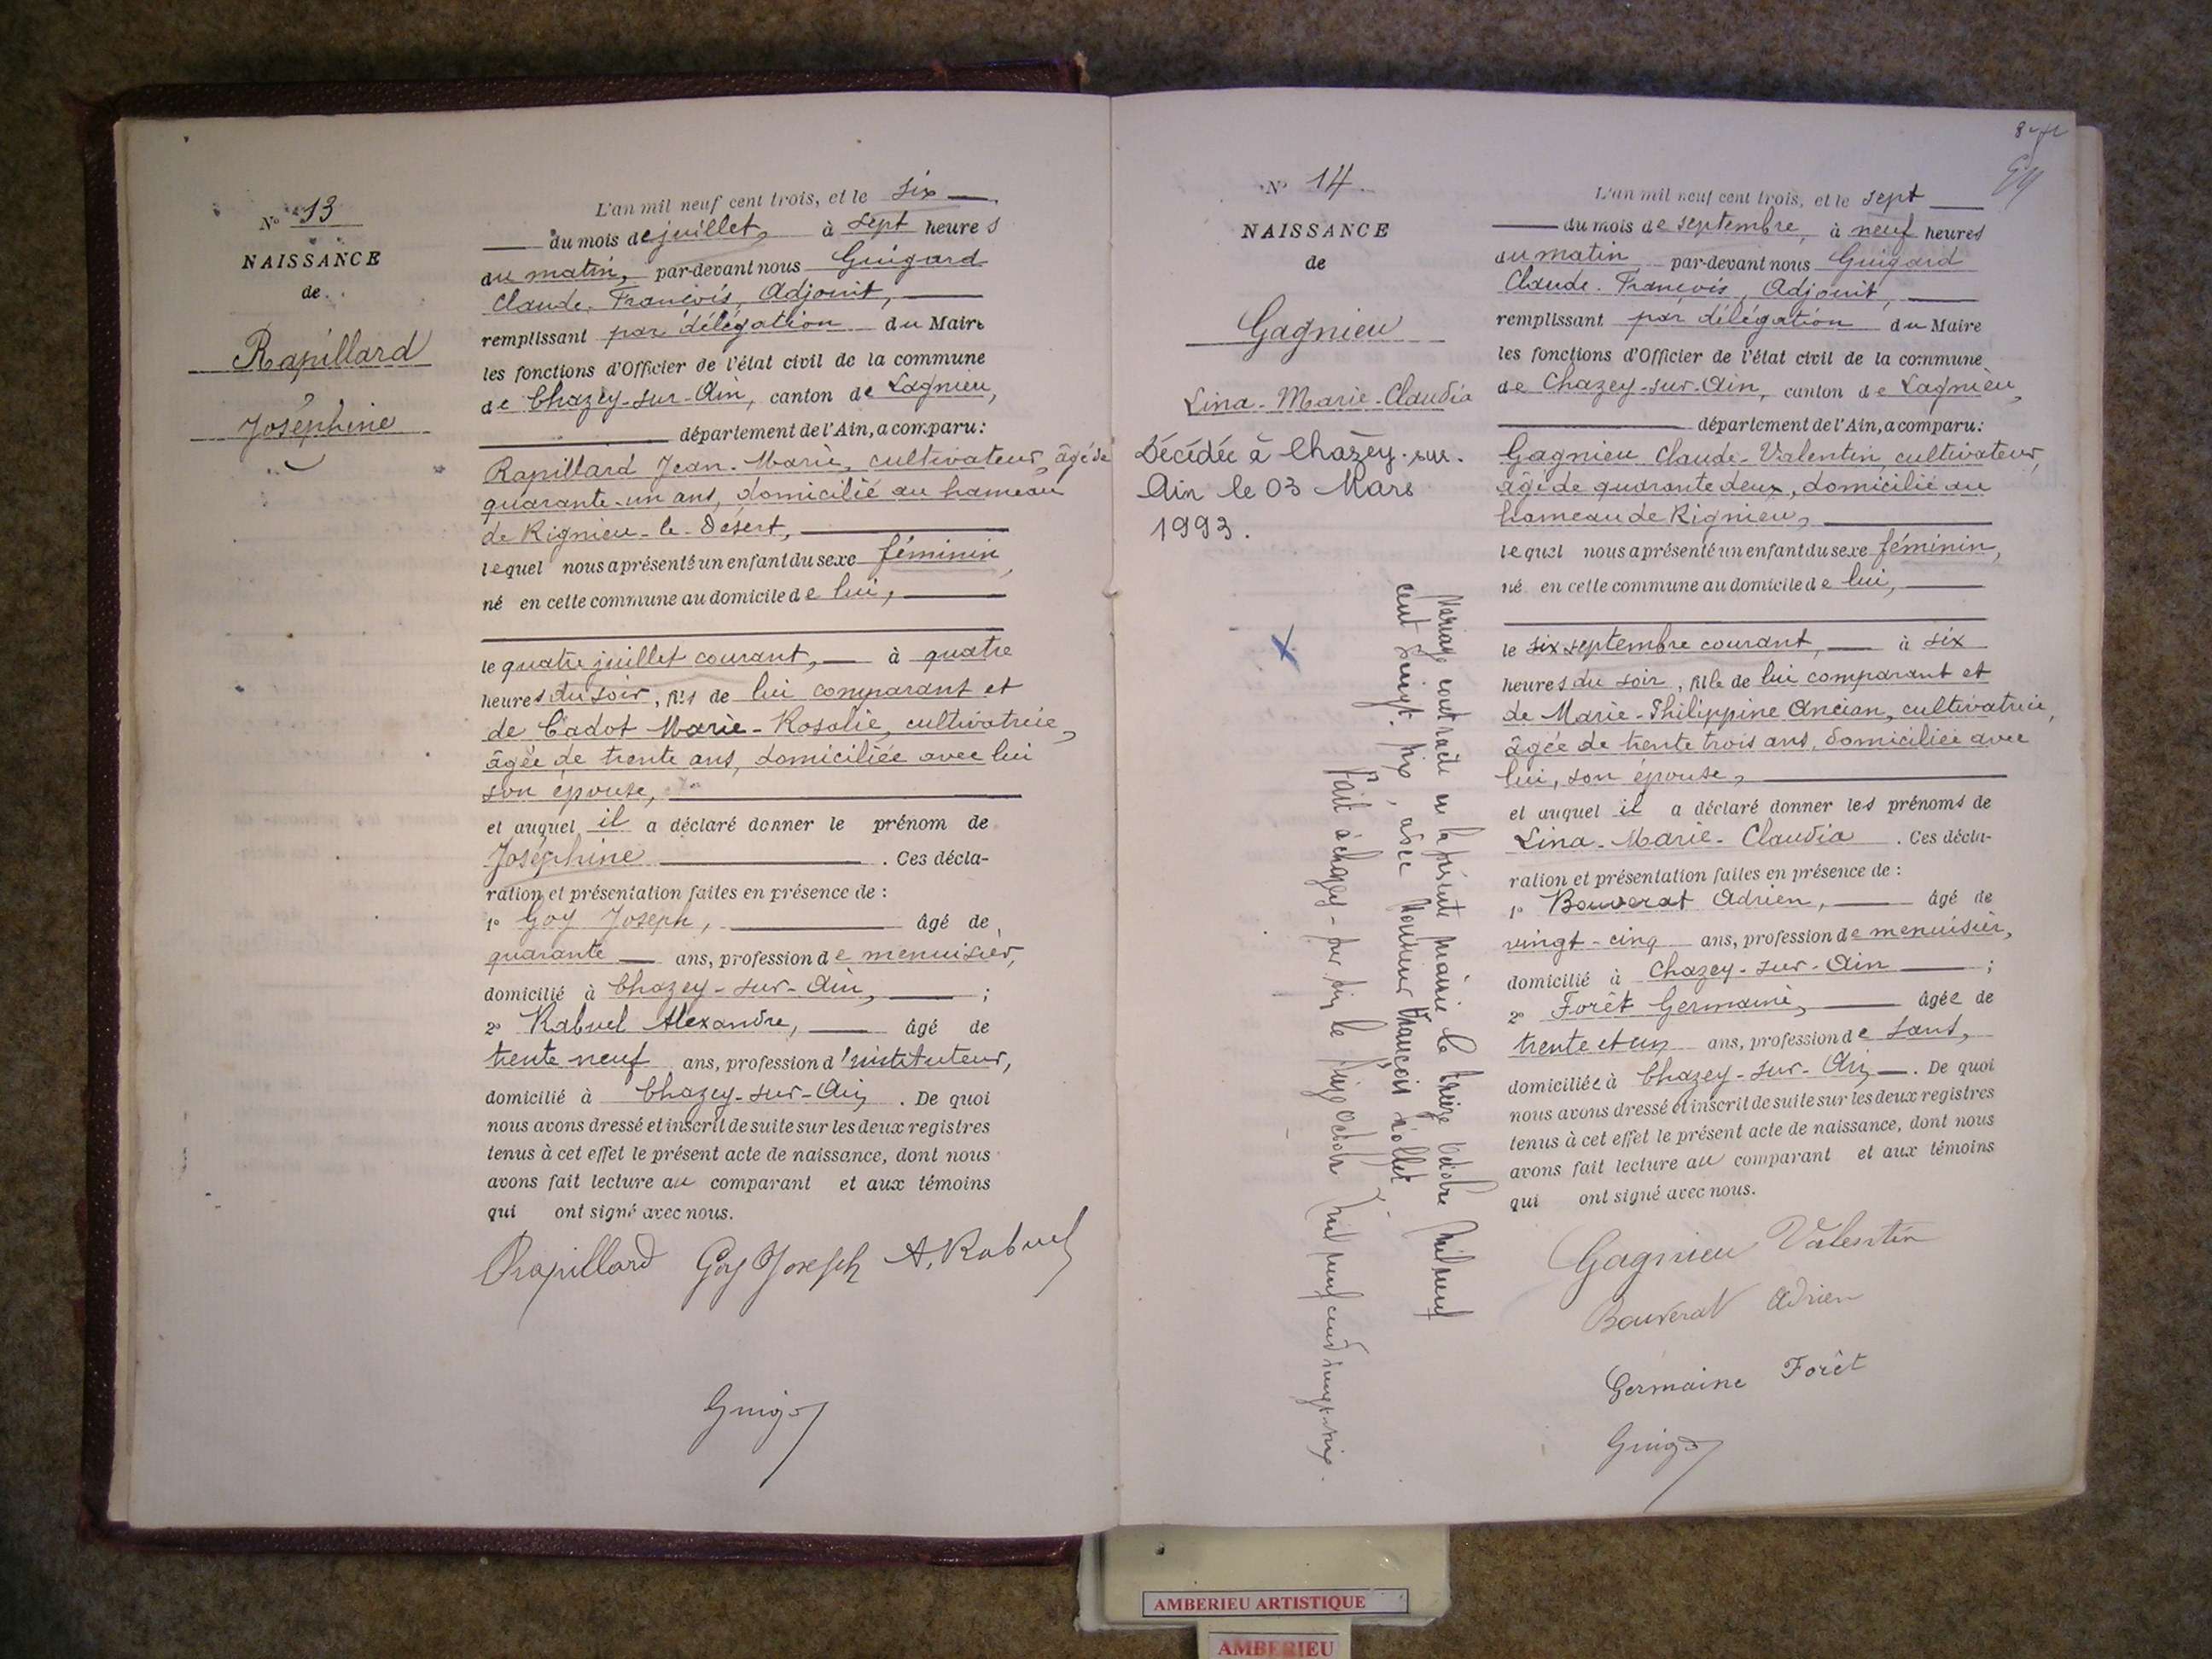 N° 13
NAISSANCE
de
Rapillard
Joséphine
L'an mil neuf cent trois, et le six
du mois de juillet, à sept heures
du matin, par-devant nous Guigard
Claude-François, Adjoint,
remplissant par délégation du Maire
les fonctions d'Officier de l'état civil de la commune
de Chazey-sur-Ain, canton de Lagnieu,
département de l'Ain, a comparu:
Rapillard Jean-Marie, cultivateur, âgé de
quarante-un ans, domicilié au hameau
de Rignieu-le-Désert,
lequel nous a présenté un enfant du sexe féminin,
né en cette commune au domicile de lui,
le quatre juillet courant, à quatre
heures du soir, fils de lui comparant et
de Cadot Marie-Rosalie, cultivatrice,
âgée de trente ans, domiciliée avec lui
son épouse,
et auquel il a déclaré donner le prénom de
Joséphine. Ces décla-
ration et présentation faites en présence de :
1° Goy Joseph, âgé de
quarante ans, profession de menuisier,
domicilié à Chazey-sur-Ain, ;
2° Rabuel Alexandre, âgé de
trente neuf ans, profession d'instituteur,
domicilié à Chazey-sur-Ain. De quoi
nous avons dressé et inscrit de suite sur les deux registres
tenus à cet effet le présent acte de naissance, dont nous
avons fait lecture au comparant et aux témoins
qui ont signé avec nous.
Rapillard Goy Joseph A. Rabuel
N° 14
NAISSANCE
de
Gagnieu
Lina-Marie-Claudia
Décédée à Chazey-sur-
Ain le 03 Mars
1993.
Mariage contracté en la présente mairie le treize octobre mil neuf
cent vingt-six, avec Monsieur François Nollet.
Fait à Chazey-sur-Ain le seize octobre mil neuf cent vingt-six.
L'an mil neuf cent trois, et le sept
du mois de septembre, à neuf heures
du matin par-devant nous Guigard
Claude-François, Adjoint,
remplissant par délégation du Maire
les fonctions d'Officier de l'état civil de la commune
de Chazey-sur-Ain, canton de Lagnieu,
département de l'Ain, a comparu:
Gagnieu Claude-Valentin, cultivateur,
âgé de quarante deux, domicilié au
hameau de Rignieu,
lequel nous a présenté un enfant du sexe féminin,
né en cette commune au domicile de lui,
le six septembre courant, à six
heures du soir, fille de lui comparant et
de Marie-Philippine Ancian, cultivatrice,
âgée de trente trois ans, domiciliée avec
lui, son épouse,
et auquel il a déclaré donner les prénoms de
Lina-Marie-Claudia. Ces décla-
ration et présentation faites en présence de :
1° Bouverat Adrien, âgé de
vingt-cinq ans, profession de menuisier,
domicilié à Chazey-sur-Ain ;
2° Forêt Germaine, âgée de
trente et un ans, profession de sans,
domiciliée à Chazey-sur-Ain. De quoi
nous avons dressé et inscrit de suite sur les deux registres
tenus à cet effet le présent acte de naissance, dont nous
avons fait lecture au comparant et aux témoins
qui ont signé avec nous.
Gagnieu Valentin
Bouverat Adrien
Germaine Forêt
AMBERIEU ARTISTIQUE
AMBERIEU